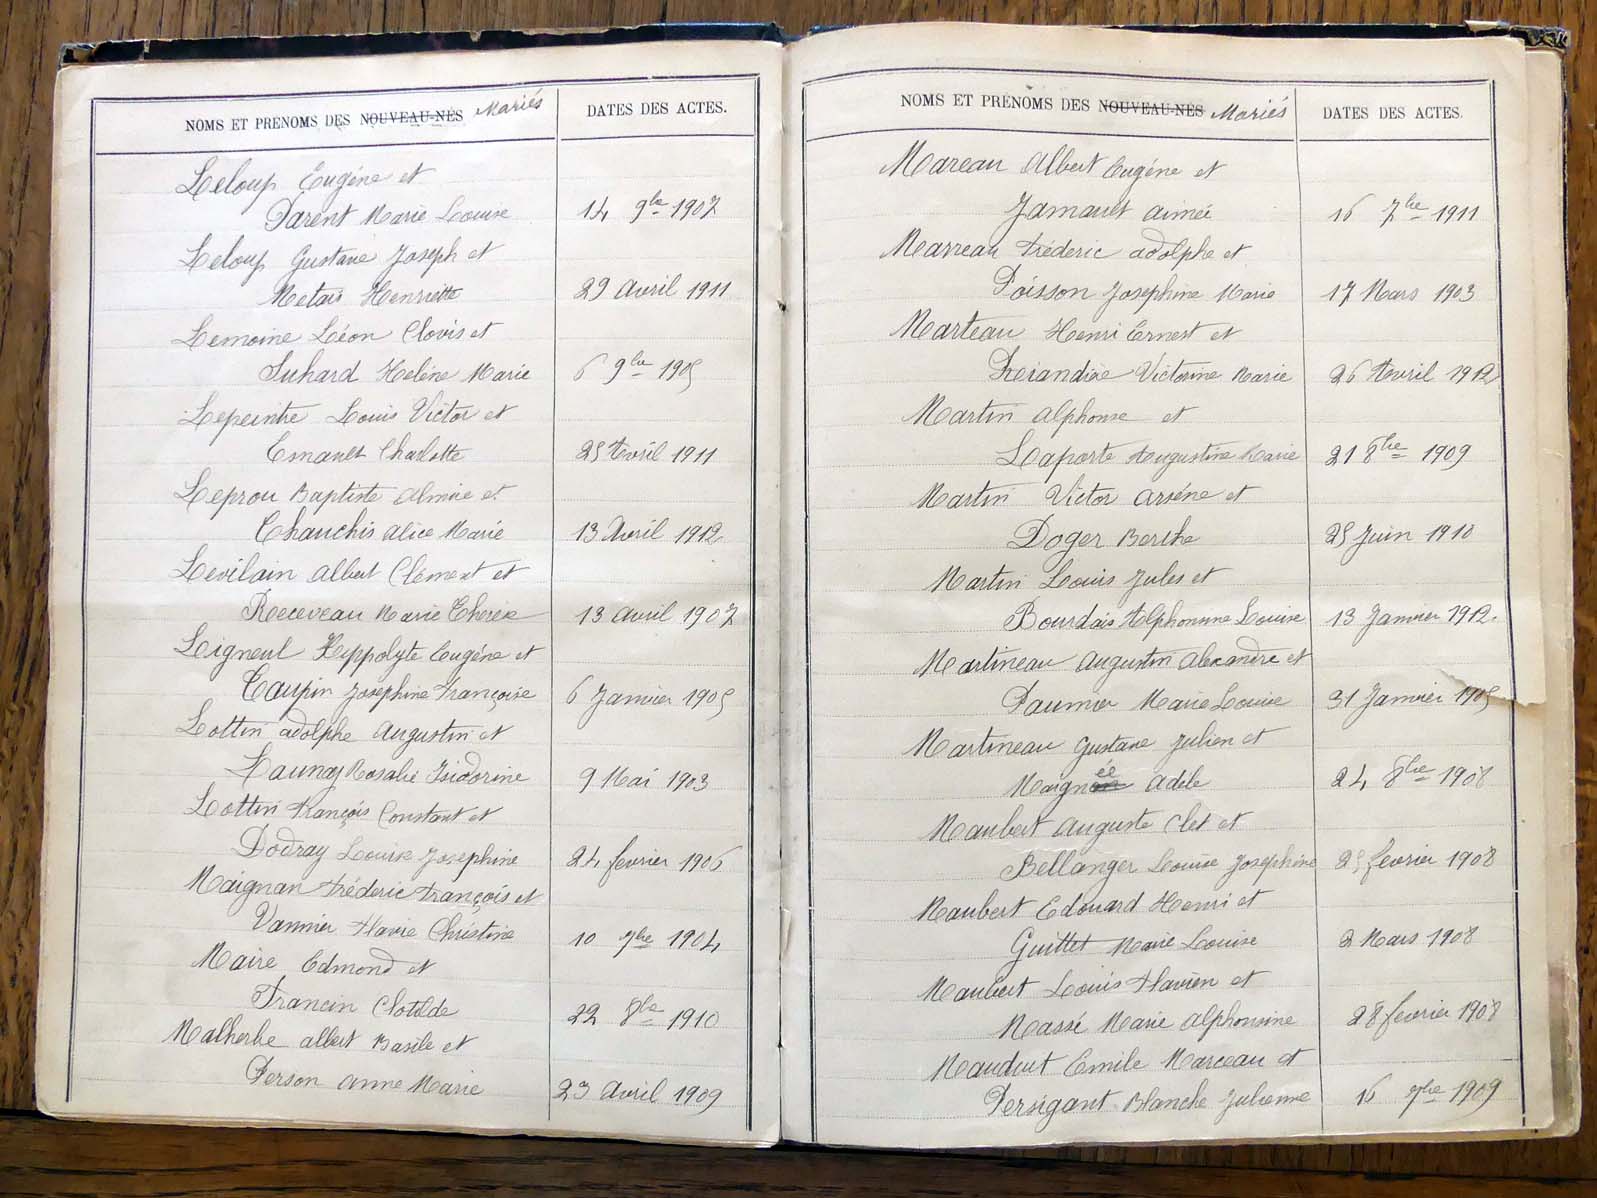 NOMS ET PRENOMS DES NOUVEAU-NÉS Mariés DATES DES ACTES.
Leloup Eugéne et
Parent Marie Louise 14 9bre 1907
Leloup Gustave Joseph et
Metais Henriette 29 Avril 1911
Lemoine Léon Clovis et
Suhard Heléne Marie 6 9bre 1905
Lepeintre Louis Victor et
Esnault Charlotte 25 Avril 1911
Leprou Baptiste et
Chauchis Alice Marie 13 Avril 1912
Levilain Albert Clément et
Receveau Marie Thérèse 13 Avril 1907
Ligneul Hippolyte Eugéne et
Taupin Joséphine Françoise 6 Janvier 1905
Lottin Adolphe Augustin et
Launay Rosalie Isidorine 9 Mai 1903
Lottin François Constant et
Dodray Louise Joséphine 24 février 1906
Maignan Fréderic François et
Vannier Flavie Christine 10 7bre 1904
Maire Edmond et
Francin Clotilde 22 8bre 1910
Malherbe Albert Basile et
Person Anne Marie 23 Avril 1909
NOMS ET PRÉNOMS DES NOUVEAU-NÉS Mariés DATES DES ACTES.
Mareau Albert Eugéne et
Jamault Aimée 16 7bre 1911
Marreau Fréderic Adolphe et
Poisson Joséphine Marie 17 Mars 1903
Marteau Henri Ernest et
Victorine Marie 26 Avril 1912
Martin Alphonse et
Laporte Augustine Marie 21 8bre 1909
Martin Victor Arséne et
Doger Berthe 25 Juin 1910
Martin Louis Jules et
Bourdais Alphonsine Louise 13 Janvier 1912.
Martineau Augustin Alexandre et
Paumier Marie Louise 31 Janvier 1905
Martineau Gustave Julien et
Maignée Adéle 24 8bre 1908
Maubert Auguste Clet et
Bellanger Louise Joséphine 25 février 1908
Maubert Edouard Henri et
Guittet Marie Louise 2 Mars 1908
Maubert Louis Flavien et
Massé Marie Alphonsine 28 février 1908
Mauduit Emile Marceau et
Persigant Blanche Julienne 16 7bre 1909